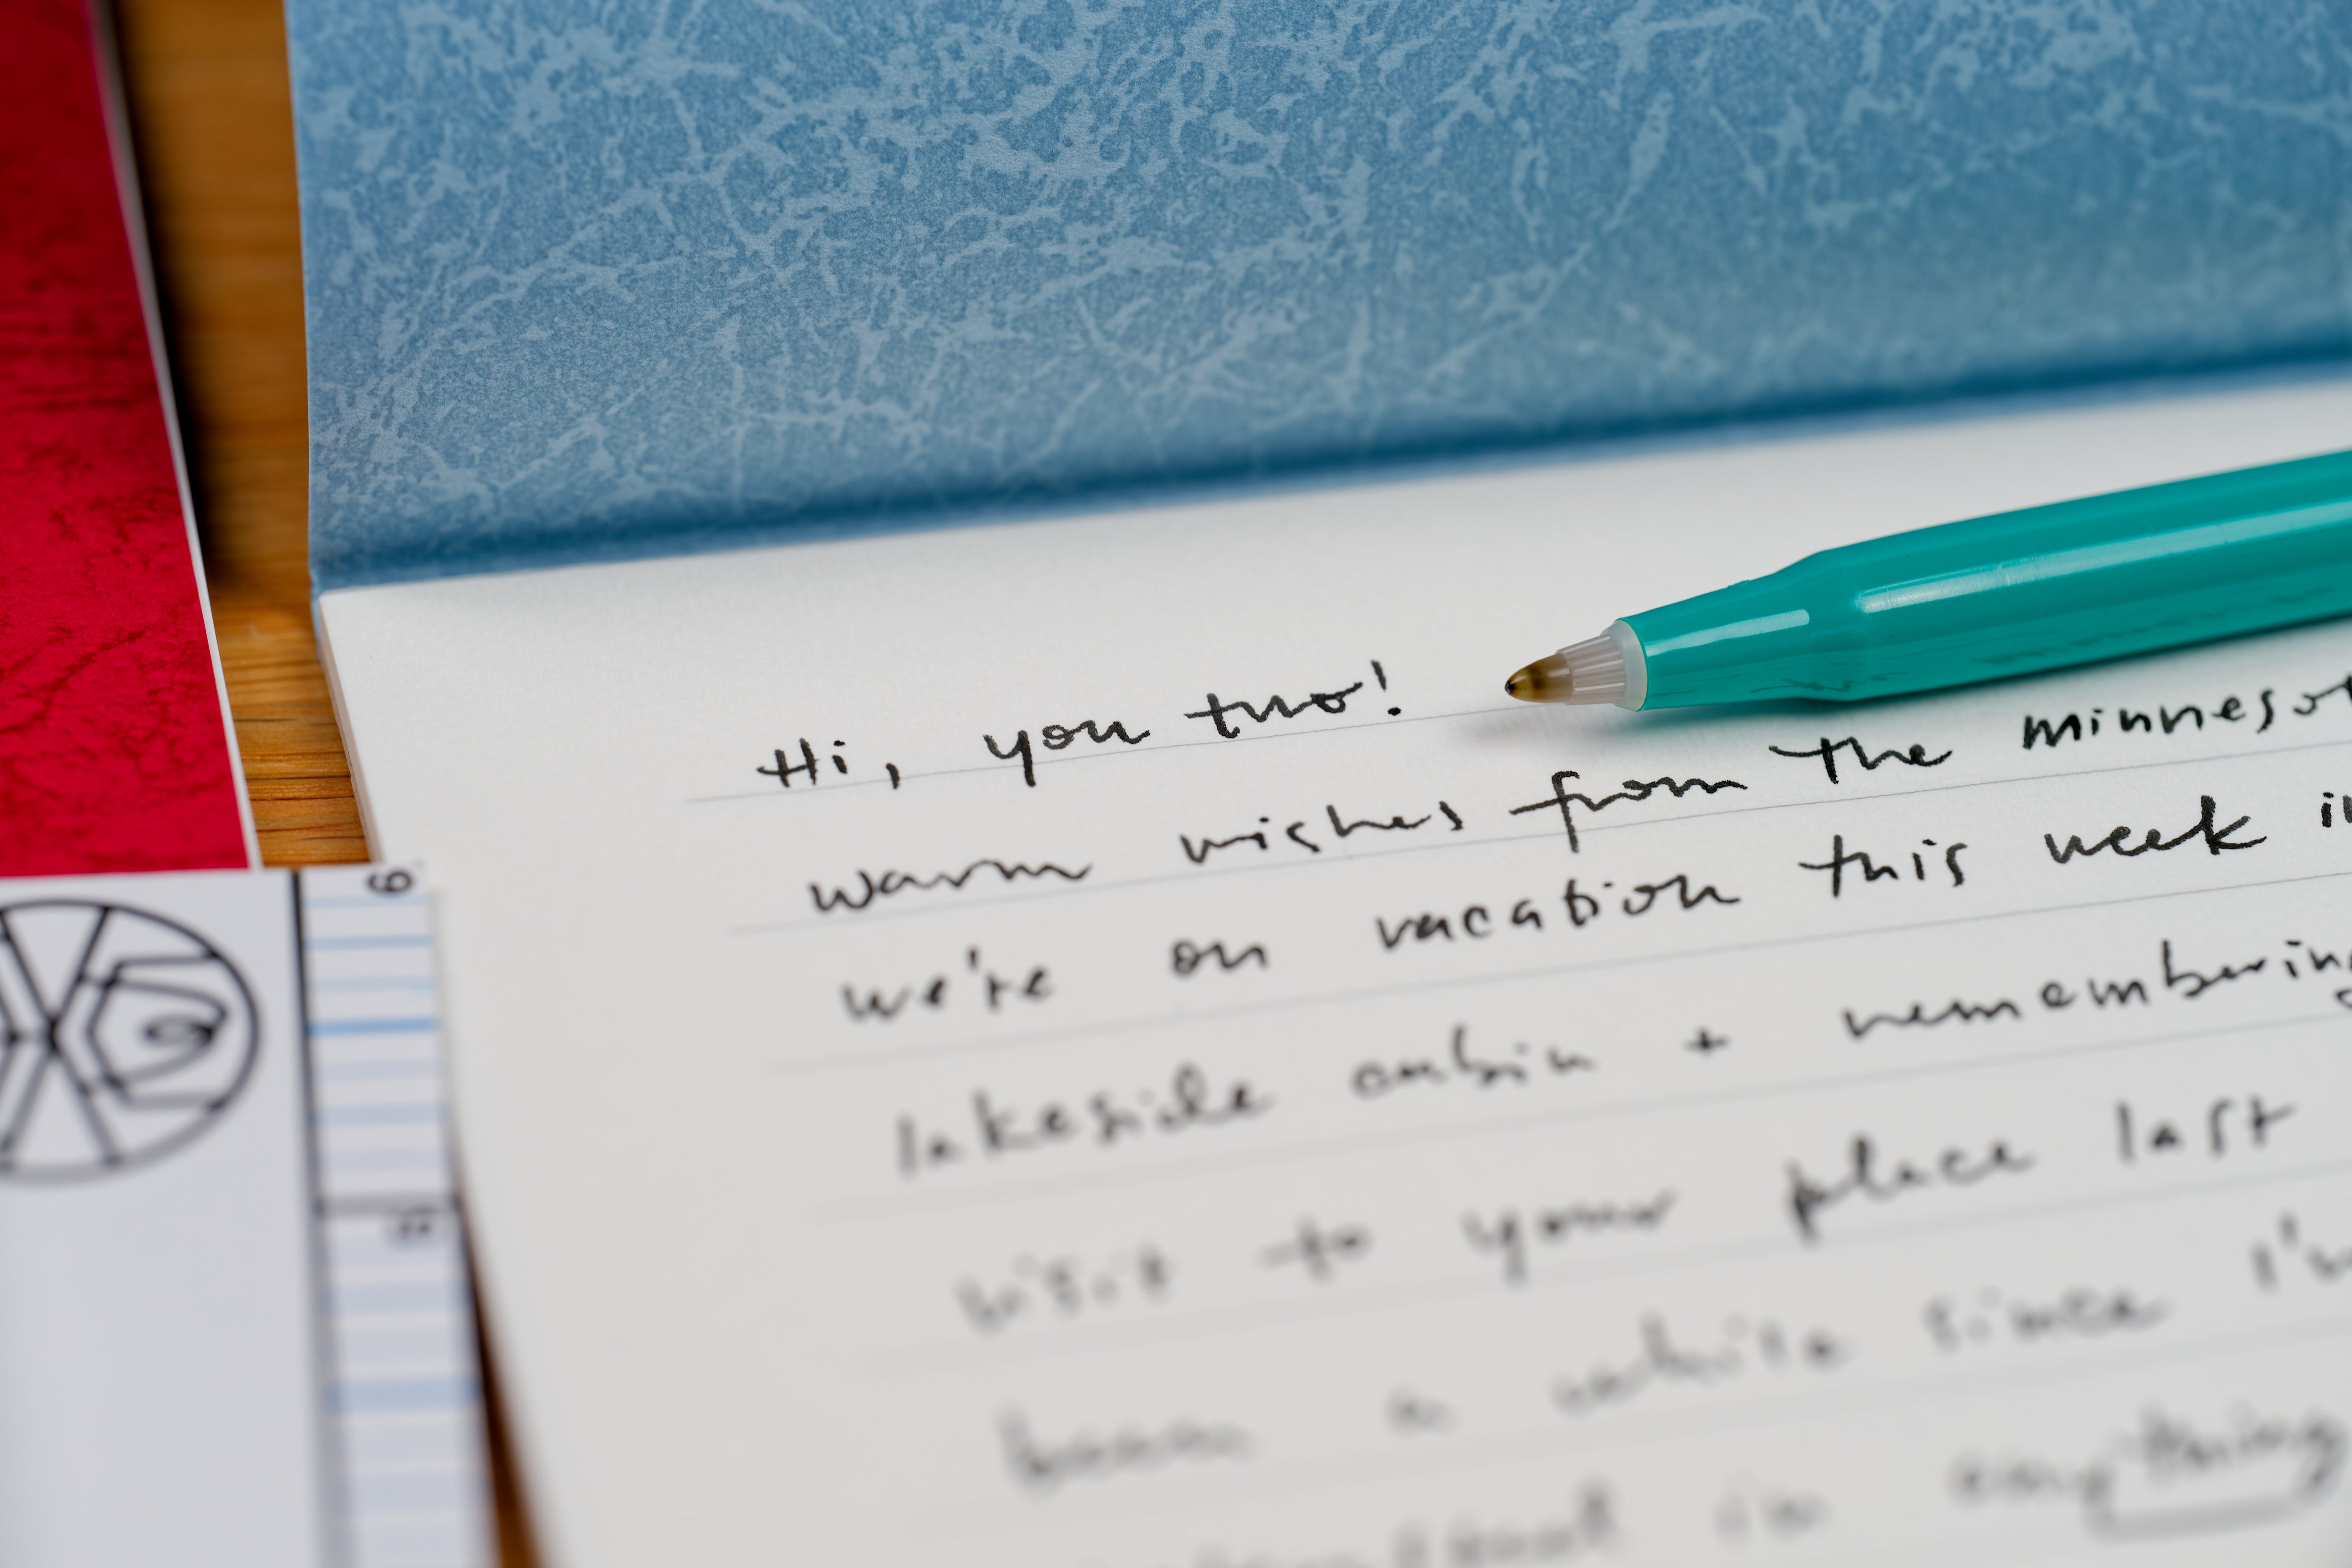 Hi, you two!
warm wishes from the Minnesot
we're on vacation this week in
lakeside cabin + remembering
visit to your place last
been a while since I'v
in anything
6
5